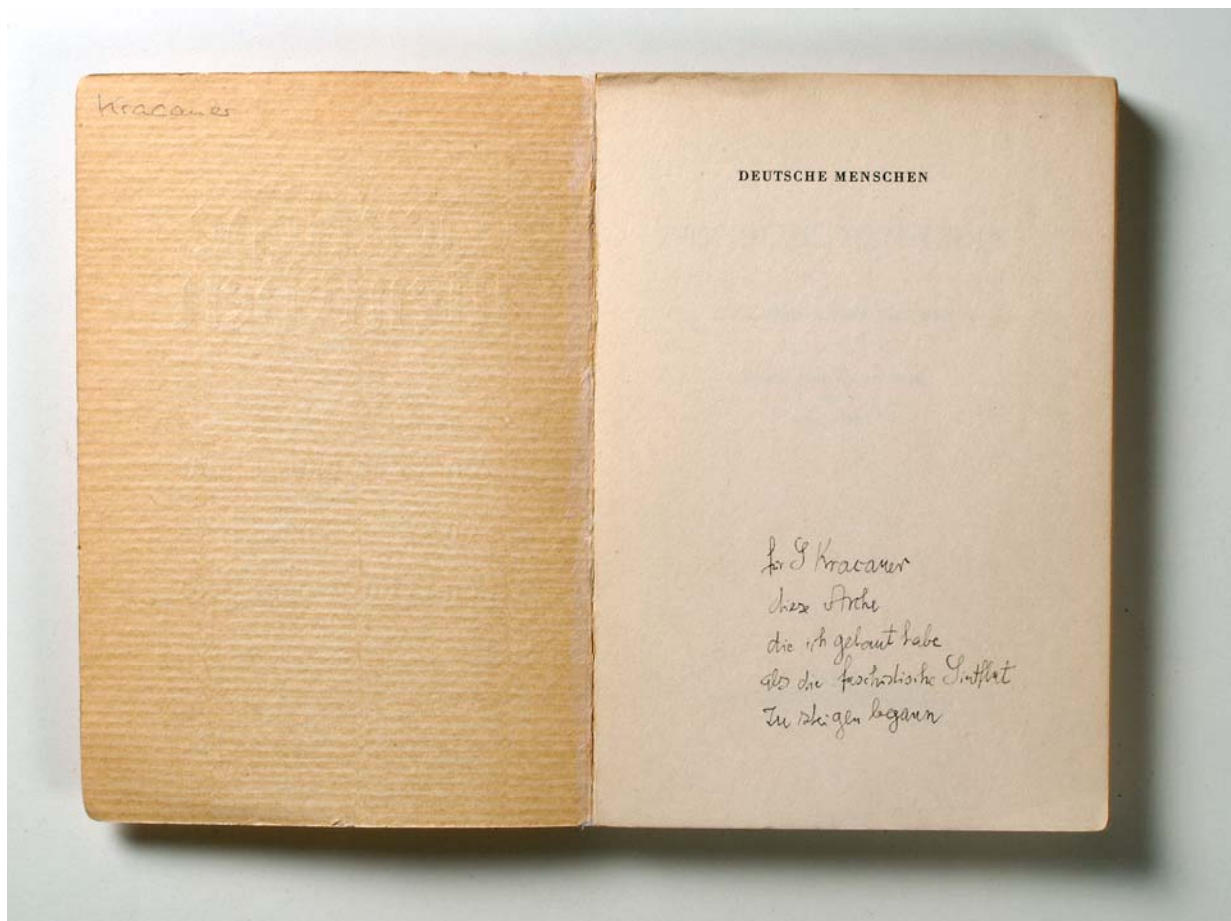 Kracauer
DEUTSCHE MENSCHEN
für S Kracauer
diese Arche
die ich gebaut habe
als die faschistische Sintflut
zu steigen begann